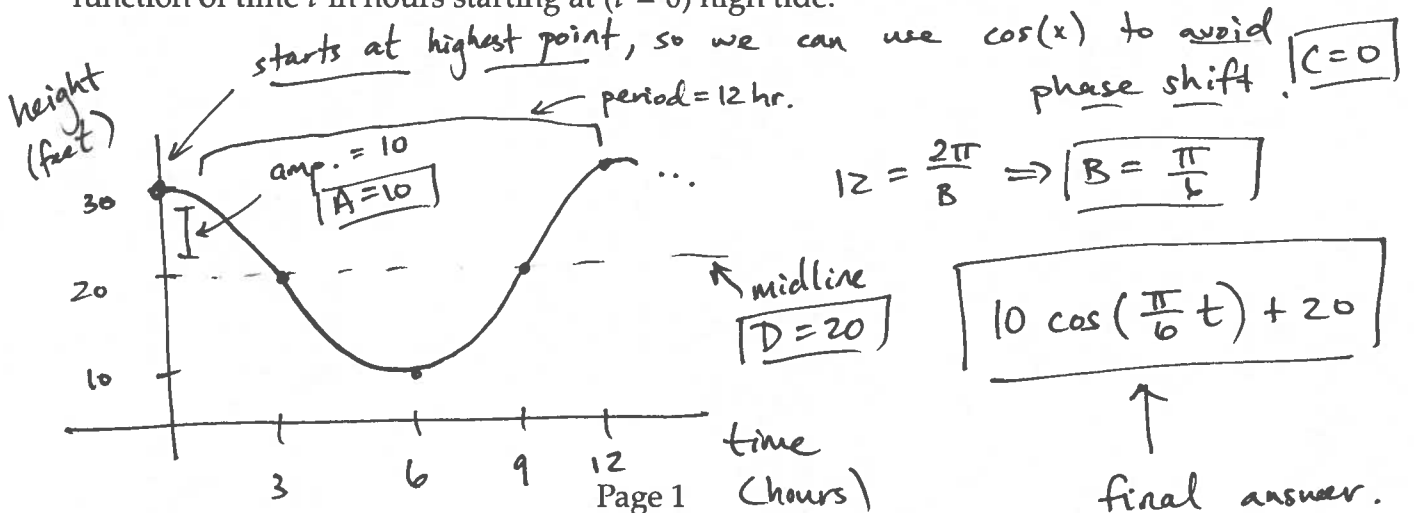 function of time t in hours starting at (t = 0) high tide.
starts at highest point, so we can use cos(x) to avoid
phase shift. C=0
height
(feet)
period = 12 hr.
amp. = 10
A=10
12 = 2π/B ⇒ B = π/6
30
...
20
midline
D=20
10 cos(π/6 t) + 20
10
time
(hours)
3 6 9 12
final answer.
Page 1